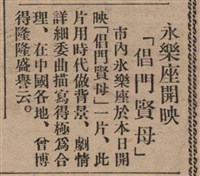 永樂座開映
「倡門賢母」
市內永樂座於本日開
映「倡門賢母」一片、此
片用時代做背景、劇情
詳細委曲描寫得極為合
理、在中國各地、曾博
得隆隆盛譽云。